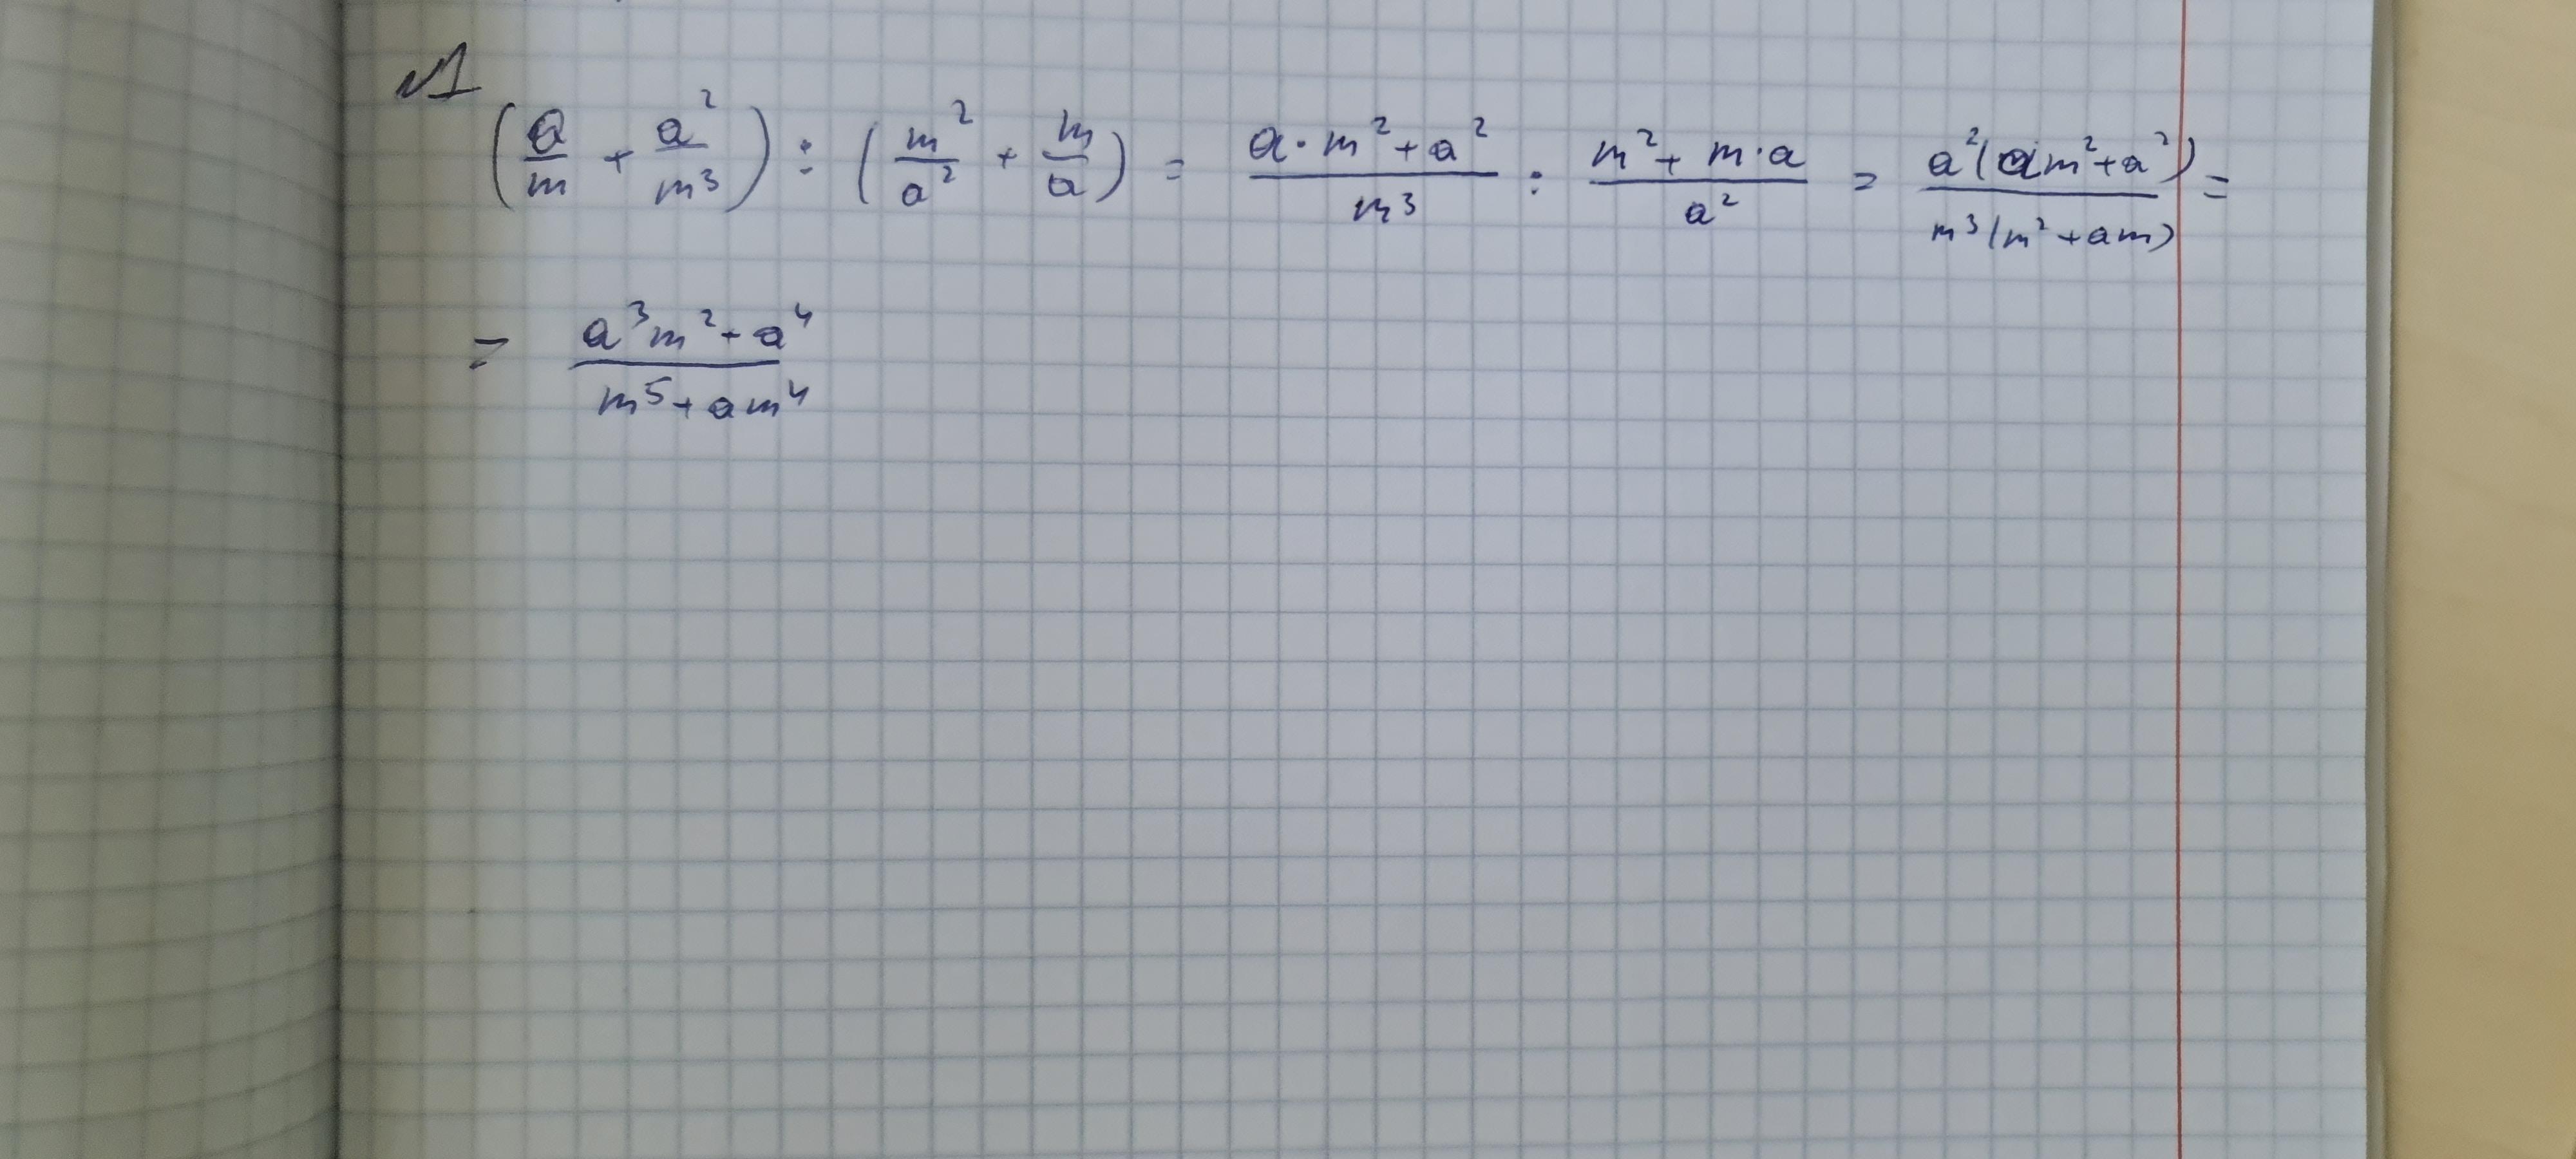 №1
(a/m + a²/m³) : (m²/a² + m/a) = (a·m² + a²)/m³ : (m² + m·a)/a² = a²(am² + a²)/m³(m² + am) =
= (a³m² + a⁴)/(m⁵ + am⁴)